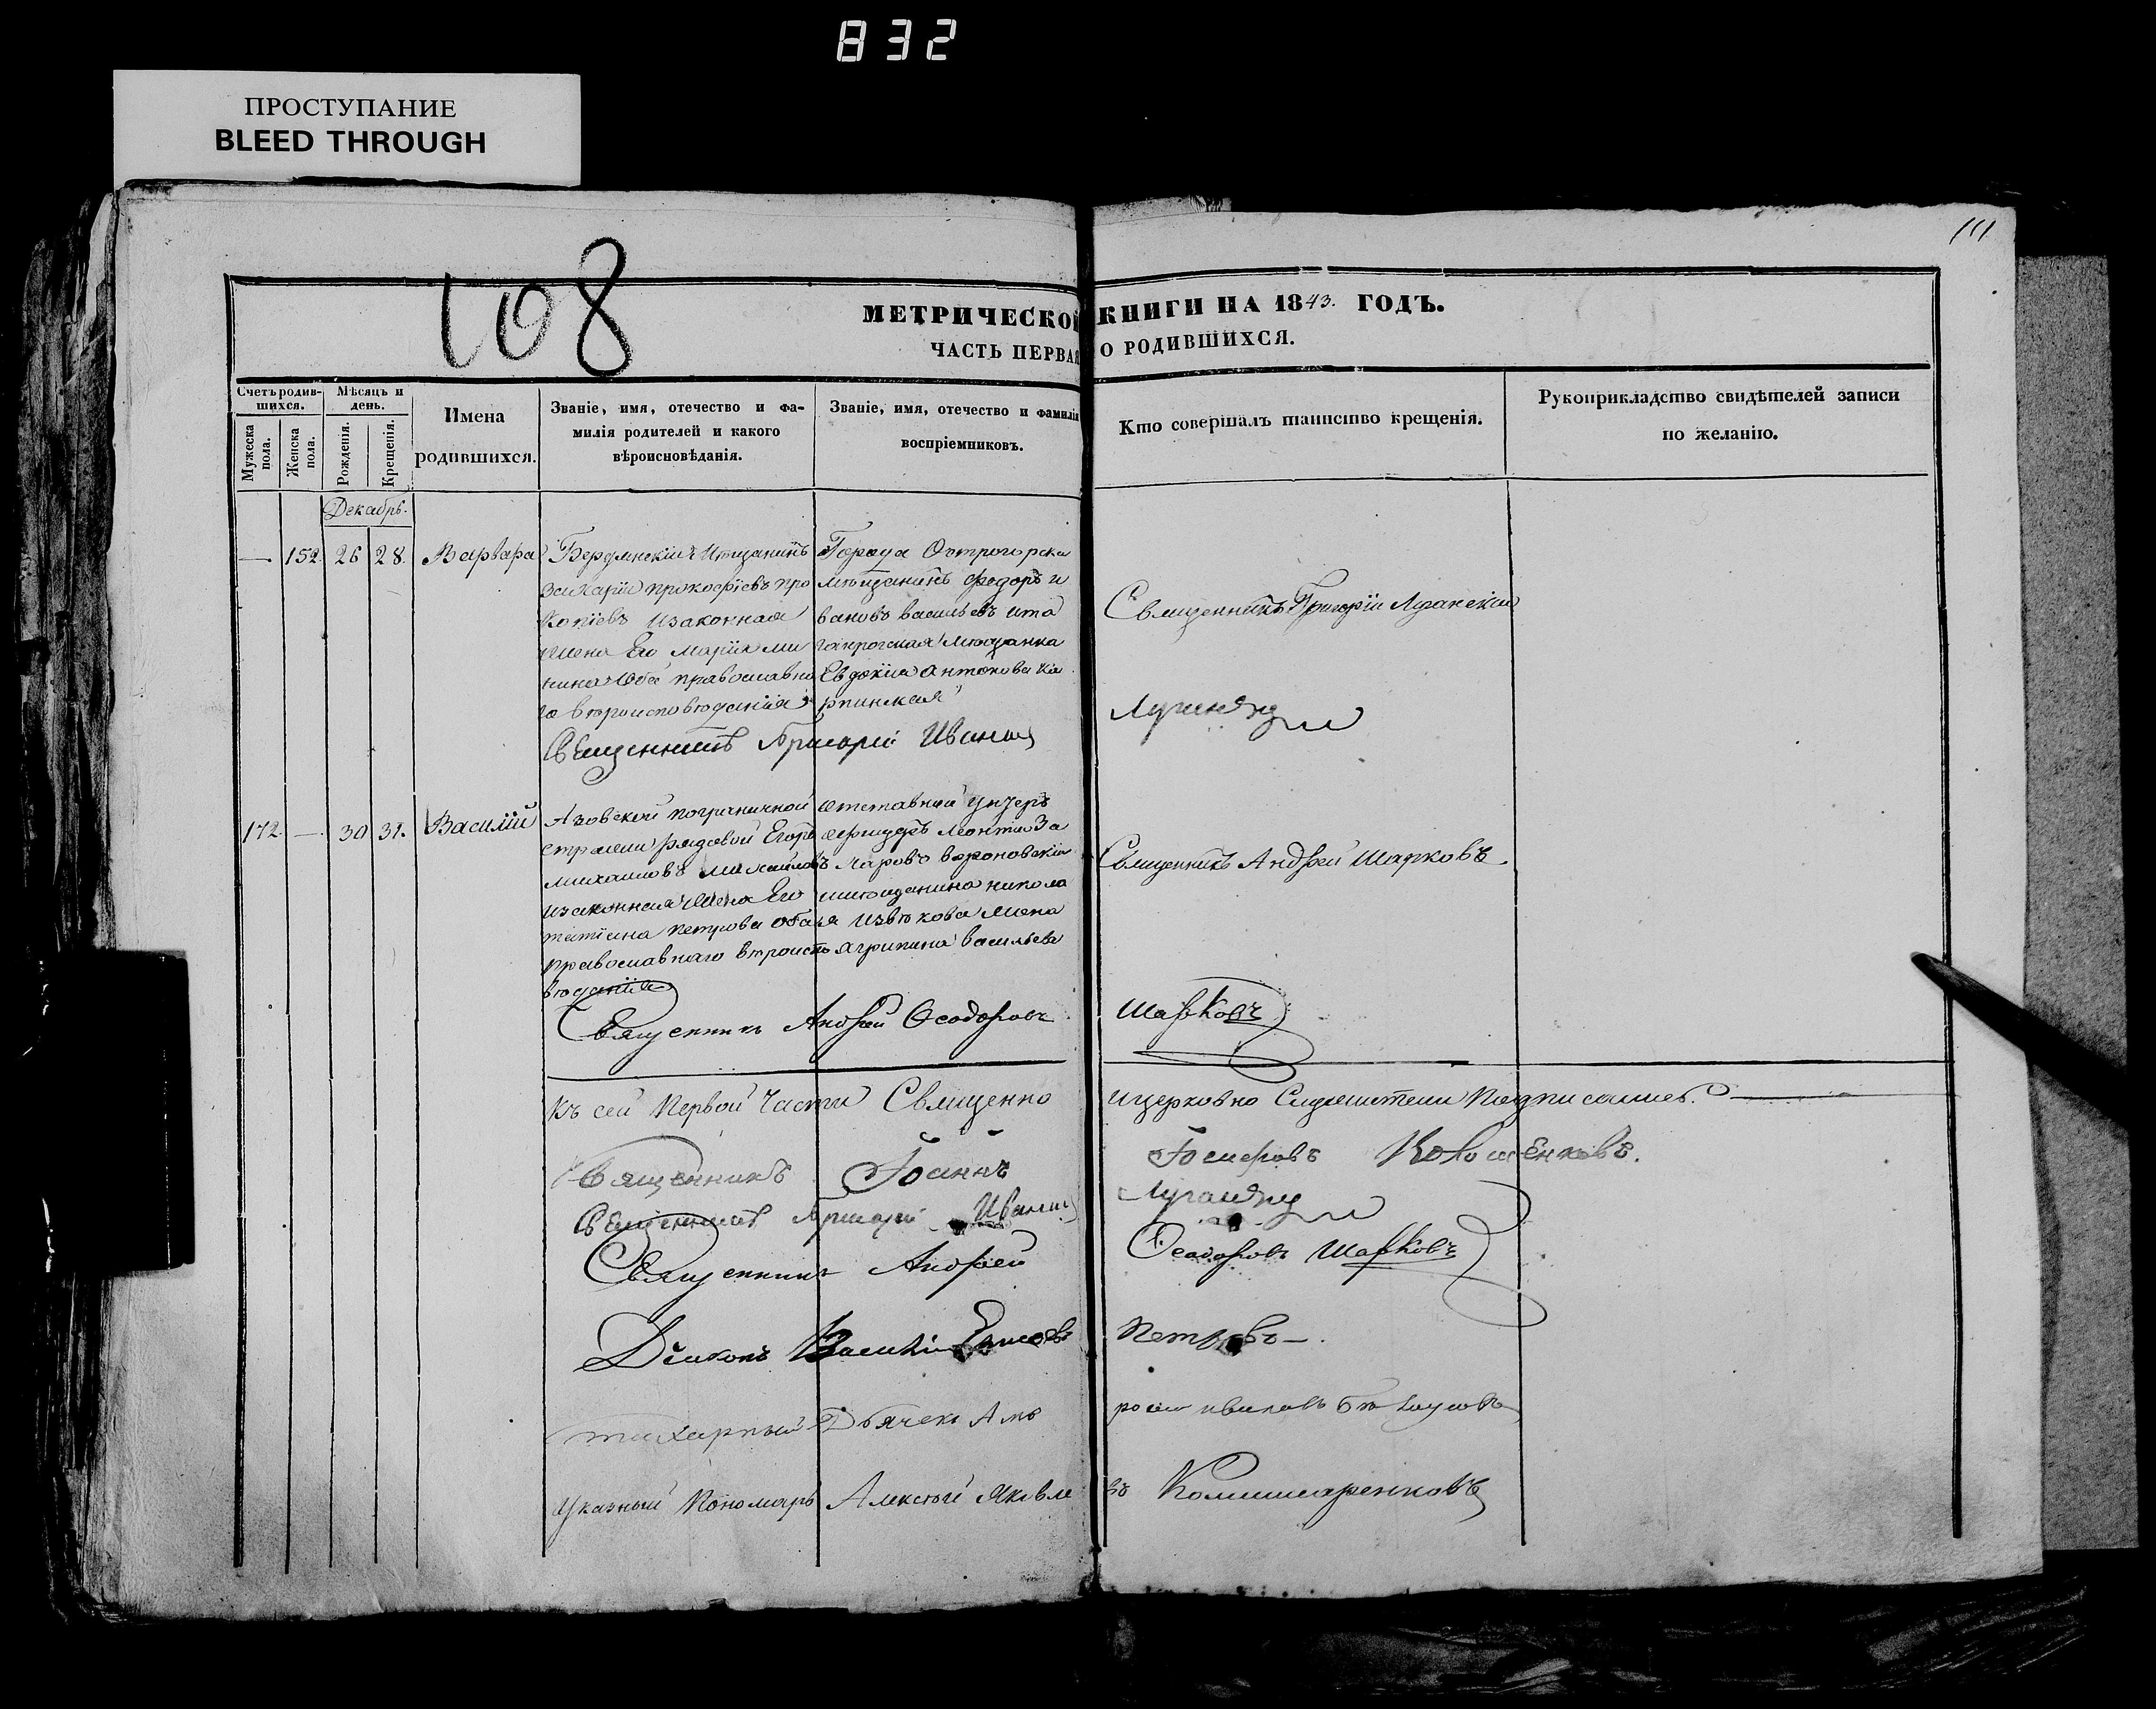 832
ПРОСТУПАНИЕ
BLEED THROUGH
111
108
МЕТРИЧЕСКОЙ КНИГИ НА 1843. ГОДЪ.
ЧАСТЬ ПЕРВАЯ О РОДИВШИХСЯ.
Счетъ родившихся.
Мужеска пола.
Женска пола.
Мѣсяцъ и день.
Рожденія.
Крещенія.
Имена родившихся.
Званіе, имя, отечество и фа-
милія родителей и какого
вѣроисповѣданія.
Званіе, имя, отечество и фамилія
воспріемниковъ.
Кто совершалъ таинство крещенія.
Рукоприкладство свидѣтелей записи
по желанію.
Декабрь.
— 152. 26 28. Варвара
Бердянскій мѣщанинъ
Захарій прокофіевъ про
копіевъ изаконная
жена Его Марія ми
нина Оба православна
го вѣроисповѣданія
Города Острогорска
мѣщанинъ Федоръ и
вановъ васильевъ ита
ганрогская мѣщанка
Евдокія антонова ка
рпинская
Священникъ Григорій Луганскій
Священникъ Григорій Иванов
172. — 30 31. Василій
Азовской пограничной
стражи рядовой Егоръ
михаиловъ михайловъ
изаконная жена Его
татіана петрова оба
православнаго вѣроиспо
вѣданія
отставной унтеръ
офицеръ Леонтій За
харовъ вороновскій
мѣщанина никола
я извѣкова жена
агрипина васильева
Священникъ Андрей Шарковъ.
Священникъ Андрей Ѳеодоровъ Шарковъ
Къ сей Первой Части Священно ицерковно Служители Подписались.
Священникъ Іоаннъ
Священникъ Григорій Иванов
Священникъ Андрей Ѳеодоровъ Шарковъ
Діаконъ Василій Петровъ
Дьячекъ Амвросій ивановъ
Указный Пономарь Алексѣй Яковлевъ Коммисаренковъ